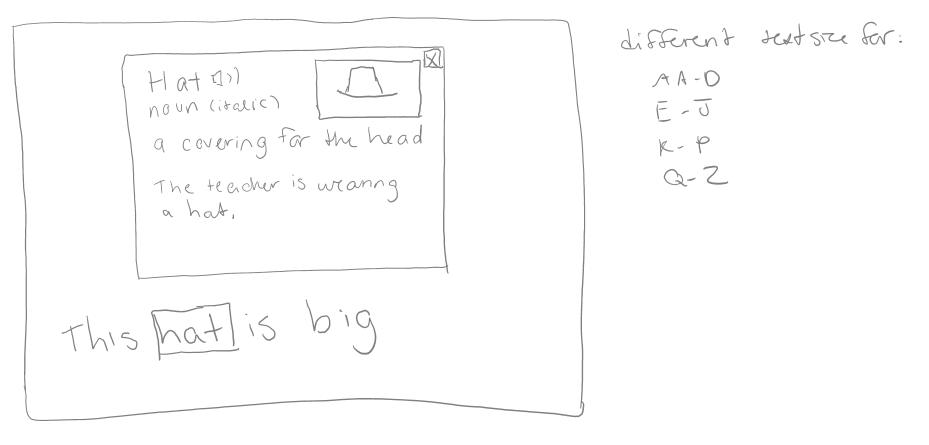 Hat
noun (italic)
a covering for the head
The teacher is wearing
a hat.
This hat is big
different text size for:
AA-D
E-J
K-P
Q-Z